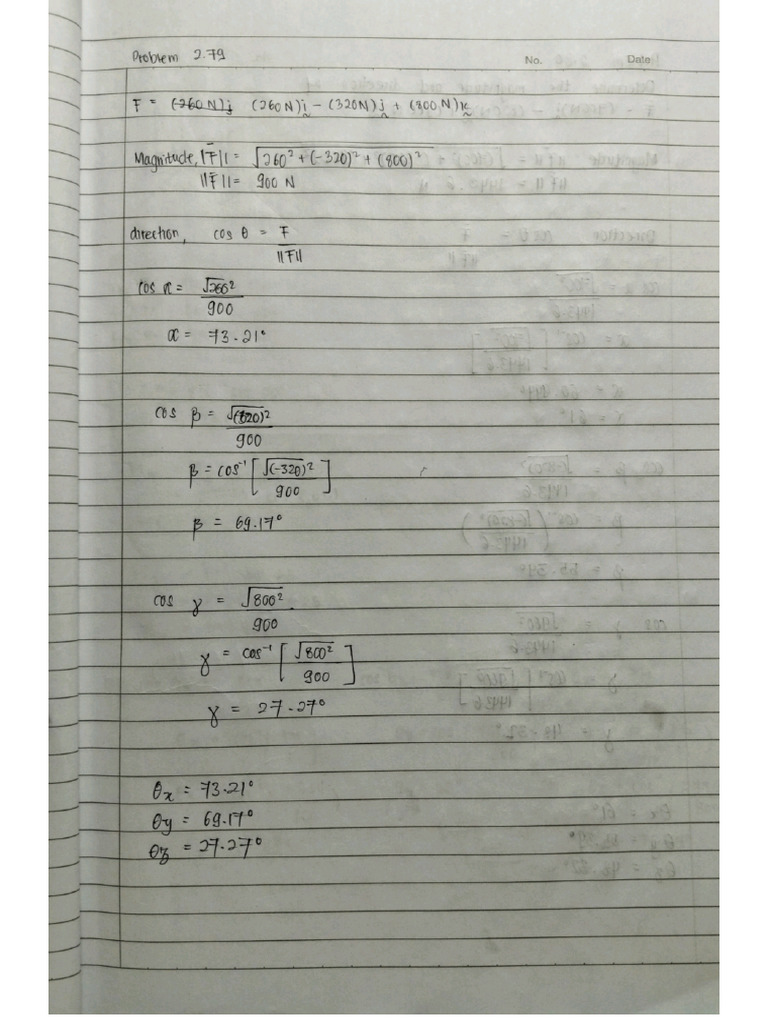 Problem 2.79 No. Date
F = (-260N)j (260N)i - (320N)j + (800N)k
Magnitude, ||F|| = √260² + (-320)² + (800)²
||F|| = 900 N
direction, cos θ = F / ||F||
cos α = √260² / 900
α = 73.21°
cos β = √(320)² / 900
β = cos⁻¹ [√(-320)² / 900]
β = 69.17°
cos γ = √800² / 900
γ = cos⁻¹ [√800² / 900]
γ = 27.27°
θx = 73.21°
θy = 69.17°
θz = 27.27°